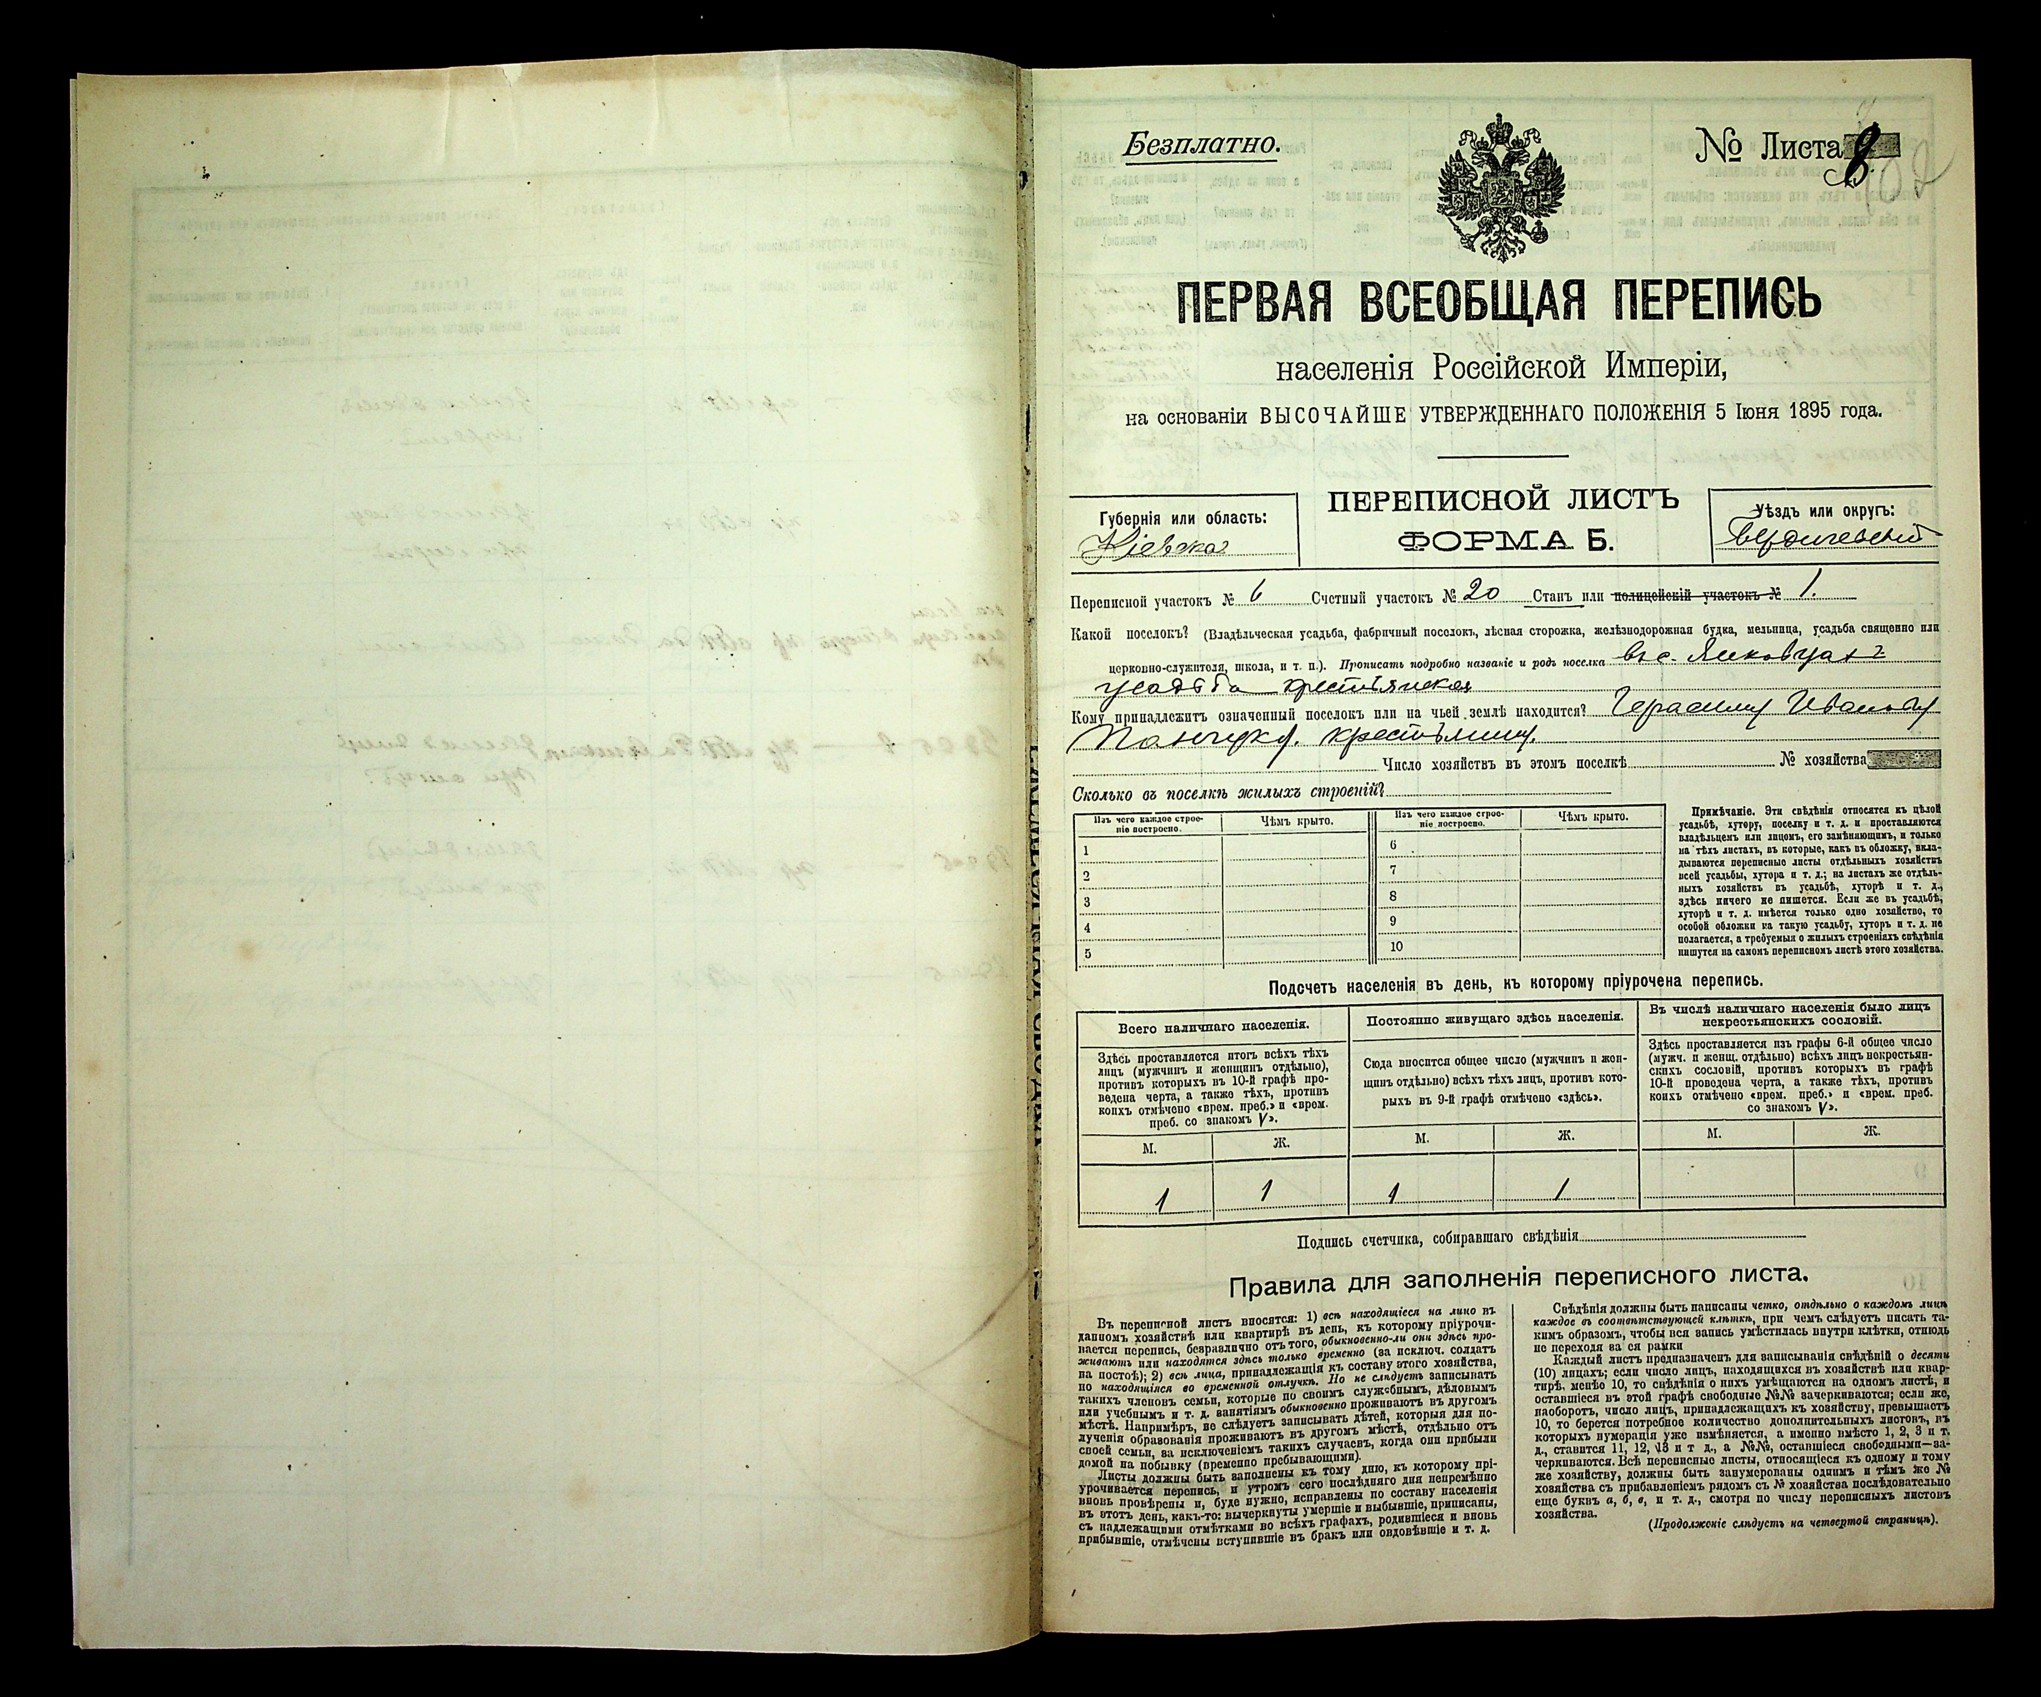 Безплатно.
№ Листа 8.
ПЕРВАЯ ВСЕОБЩАЯ ПЕРЕПИСЬ
населенія Россійской Имперіи,
на основаніи ВЫСОЧАЙШЕ УТВЕРЖДЕННАГО ПОЛОЖЕНІЯ 5 Іюня 1895 года.
Губернія или область:
Кіевская
ПЕРЕПИСНОЙ ЛИСТЪ
ФОРМА Б.
Уѣздъ или округъ:
Бердичевскій
Переписной участокъ № 6 Счетный участокъ № 20 Станъ или полицейскій участокъ № 1.
Какой поселокъ? (Владѣльческая усадьба, фабричный поселокъ, лѣсная сторожка, желѣзнодорожная будка, мельница, усадьба священно или
церковно-служителя, школа, и т. п.). Прописать подробно названіе и родъ поселка въ с. Янковцахъ
усадьба крестьянская
Кому принадлежитъ означенный поселокъ или на чьей землѣ находится? Герасиму Иванову
Панчуку. крестьянину.
Число хозяйствъ въ этомъ поселкѣ № хозяйства
Сколько въ поселкѣ жилыхъ строеній?
Изъ чего каждое строе-
ніе построено.
Чѣмъ крыто.
Изъ чего каждое строе-
ніе построено.
Чѣмъ крыто.
1
2
3
4
5
6
7
8
9
10
Примѣчаніе. Эти свѣдѣнія относятся къ цѣлой
усадьбѣ, хутору, поселку и т. д. и проставляются
владѣльцемъ или лицомъ, его замѣняющимъ, и только
на тѣхъ листахъ, въ которые, какъ въ обложку, вкла-
дываются переписные листы отдѣльныхъ хозяйствъ
всей усадьбы, хутора и т. д.; на листахъ же отдѣль-
ныхъ хозяйствъ въ усадьбѣ, хуторѣ и т. д.,
здѣсь ничего не пишется. Если же въ усадьбѣ,
хуторѣ и т. д. имѣется только одно хозяйство, то
особой обложки на такую усадьбу, хуторъ и т. д. не
полагается, а требуемыя о жилыхъ строеніяхъ свѣдѣнія
пишутся на самомъ переписномъ листѣ этого хозяйства.
Подсчетъ населенія въ день, къ которому пріурочена перепись.
Всего наличнаго населенія.
Здѣсь проставляется итогъ всѣхъ тѣхъ
лицъ (мужчинъ и женщинъ отдѣльно),
противъ которыхъ въ 10-й графѣ про-
ведена черта, а также тѣхъ, противъ
коихъ отмѣчено «врем. преб.» и «врем.
преб. со знакомъ V».
М. Ж.
1 1
Постоянно живущаго здѣсь населенія.
Сюда вносится общее число (мужчинъ и жен-
щинъ отдѣльно) всѣхъ тѣхъ лицъ, противъ кото-
рыхъ въ 9-й графѣ отмѣчено «здѣсь».
М. Ж.
1 1
Въ числѣ наличнаго населенія было лицъ
некрестьянскихъ сословій.
Здѣсь проставляется изъ графы 6-й общее число
(мужч. и женщ. отдѣльно) всѣхъ лицъ некрестьян-
скихъ сословій, противъ которыхъ въ графѣ
10-й проведена черта, а также тѣхъ, противъ
коихъ отмѣчено «врем. преб.» и «врем. преб.
со знакомъ V».
М. Ж.
Подпись счетчика, собиравшаго свѣдѣнія
Правила для заполненія переписного листа.
Въ переписной листъ вносятся: 1) всѣ находящіеся на лицо въ
данномъ хозяйствѣ или квартирѣ въ день, къ которому пріурочи-
вается перепись, безразлично отъ того, обыкновенно-ли они здѣсь про-
живаютъ или находятся здѣсь только временно (за исключ. солдатъ
на постоѣ); 2) всѣ лица, принадлежащія къ составу этого хозяйства,
но находящіяся во временной отлучкѣ. Но не слѣдуетъ записывать
такихъ членовъ семьи, которые по своимъ служебнымъ, дѣловымъ
или учебнымъ и т. д. занятіямъ обыкновенно проживаютъ въ другомъ
мѣстѣ. Напримѣръ, не слѣдуетъ записывать дѣтей, которыя для по-
лученія образованія проживаютъ въ другомъ мѣстѣ, отдѣльно отъ
своей семьи, за исключеніемъ такихъ случаевъ, когда они прибыли
домой на побывку (временно пребывающими).
Листы должны быть заполнены къ тому дню, къ которому прі-
урочивается перепись, и утромъ сего послѣдняго дня непремѣнно
вновь провѣрены и, буде нужно, исправлены по составу населенія
въ этотъ день, какъ-то: вычеркнуты умершіе и выбывшіе, приписаны,
съ надлежащими отмѣтками во всѣхъ графахъ, родившіеся и вновь
прибывшіе, отмѣчены вступившіе въ бракъ или овдовѣвшіе и т. д.
Свѣдѣнія должны быть написаны четко, отдѣльно о каждомъ лицѣ
каждое въ соотвѣтствующей клѣткѣ, при чемъ слѣдуетъ писать та-
кимъ образомъ, чтобы вся запись умѣстилась внутри клѣтки, отнюдь
не переходя за ея рамки
Каждый листъ предназначенъ для записыванія свѣдѣній о десяти
(10) лицахъ; если число лицъ, находящихся въ хозяйствѣ или квар-
тирѣ, менѣе 10, то свѣдѣнія о нихъ умѣщаются на одномъ листѣ, и
оставшіеся въ этой графѣ свободные №№ зачеркиваются; если же,
наоборотъ, число лицъ, принадлежащихъ къ хозяйству, превышаетъ
10, то берется потребное количество дополнительныхъ листовъ, въ
которыхъ нумерація уже измѣняется, а именно вмѣсто 1, 2, 3 и т.
д., ставится 11, 12, 13 и т д., а №№, оставшіеся свободными—за-
черкиваются. Всѣ переписные листы, относящіеся къ одному и тому
же хозяйству, должны быть занумерованы однимъ и тѣмъ же №
хозяйства съ прибавленіемъ рядомъ съ № хозяйства послѣдовательно
еще буквъ а, б, в, и т. д., смотря по числу переписныхъ листовъ
хозяйства.
(Продолженіе слѣдуетъ на четвертой страницѣ).